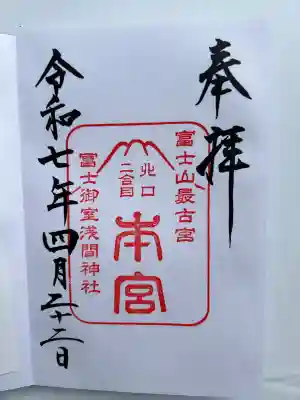 奉拝
富士山最古宮
北口
二合目
本宮
冨士御室浅間神社
令和七年四月二十二日